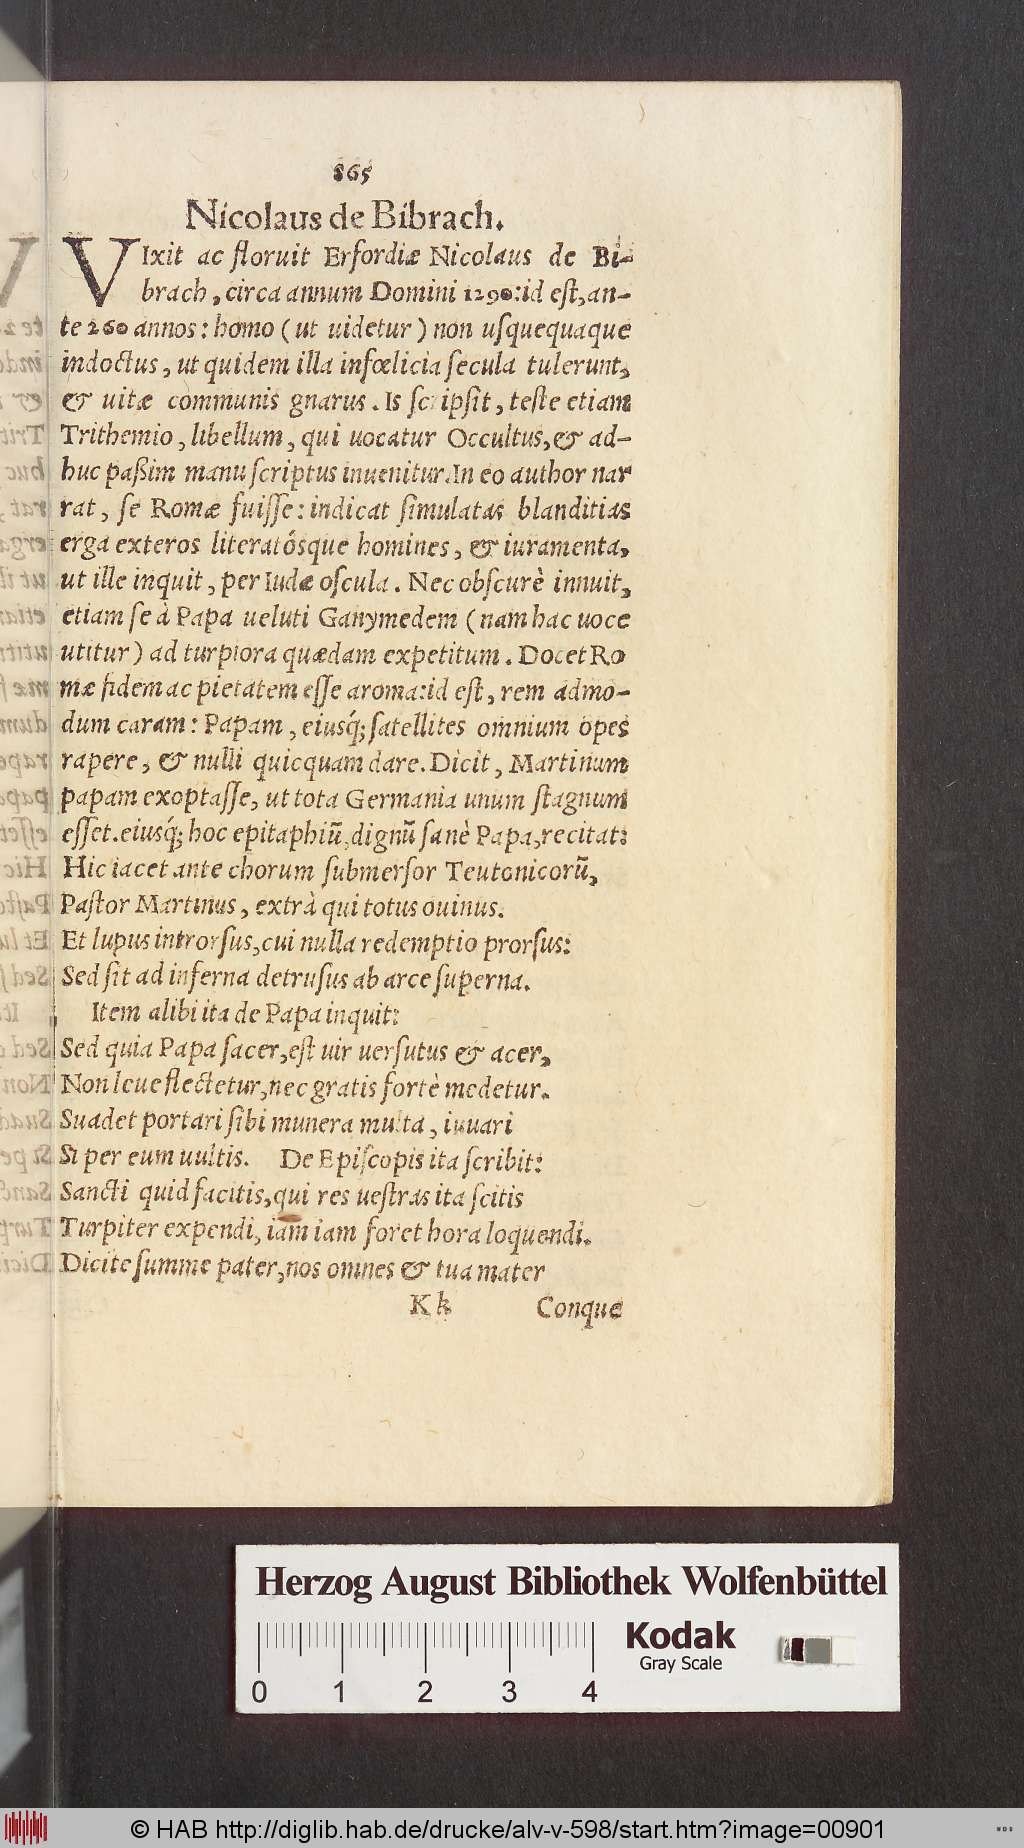 865
Nicolaus de Bibrach.
VIxit ac floruit Erfordiæ Nicolaus de Bi-
brach, circa annum Domini 1290: id eſt, an-
te 260 annos: homo (ut uidetur) non uſquequaque
indoctus, ut quidem illa infœlicia ſecula tulerunt,
& uitæ communis gnarus. Is ſcripſit, teſte etiam
Trithemio, libellum, qui uocatur Occultus, & ad-
huc paßim manu ſcriptus inuenitur. In eo author nar
rat, ſe Romæ fuiſſe: indicat ſimulatas blanditias
erga exteros literatósque homines, & iuramenta,
ut ille inquit, per Iudæ oſcula. Nec obſcurè innuit,
etiam ſe à Papa ueluti Ganymedem (nam hac uoce
utitur) ad turpiora quædam expetitum. Docet Ro
mæ fidem ac pietatem eſſe aroma: id eſt, rem admo-
dum caram: Papam, eiusq́; ſatellites omnium opes
rapere, & nulli quicquam dare. Dicit, Martinum
papam exoptaſſe, ut tota Germania unum ſtagnum
eſſet. eiusq́; hoc epitaphiũ, dignũ ſanè Papa, recitat:
Hic iacet ante chorum ſubmerſor Teutonicorũ,
Paſtor Martinus, extrà qui totus ouinus.
Et lupus introrſus, cui nulla redemptio prorſus:
Sed ſit ad inferna detruſus ab arce ſuperna.
Item alibi ita de Papa inquit:
Sed quia Papa ſacer, eſt uir uerſutus & acer,
Non leue flectetur, nec gratis fortè medetur.
Suadet portari ſibi munera multa, iuuari
Si per eum uultis. De Epiſcopis ita ſcribit:
Sancti quid facitis, qui res ueſtras ita ſcitis
Turpiter expendi, iam iam foret hora loquendi.
Dicite ſumme pater, nos omnes & tua mater
Kk Conque
Herzog August Bibliothek Wolfenbüttel
Kodak
Gray Scale
0 1 2 3 4
© HAB http://diglib.hab.de/drucke/alv-v-598/start.htm?image=00901